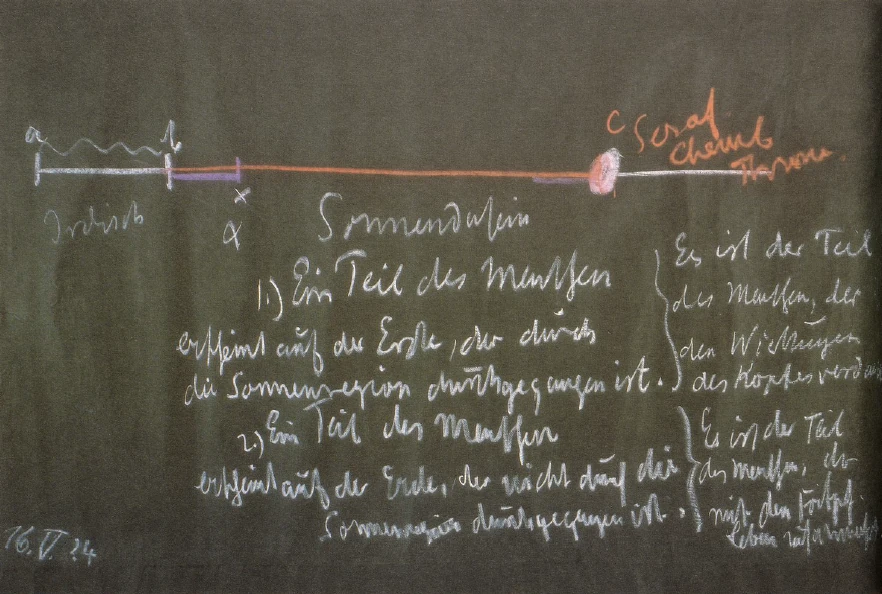 a b
C Seraf
Cherub
Throne
x
α
Irdisch Sonnendasein
1.) Ein Teil des Menschen
erscheint auf der Erde, der durch
die Sonnenregion durchgegangen ist.
Es ist der Teil
des Menschen, der
den Wirkungen
des Kopfes
2.) Ein Teil des Menschen
erscheint auf der Erde, der nicht durch die
Sonnenregion durchgegangen ist.
Es ist der Teil
des Menschen, der
mit dem
leben
16. V. 24